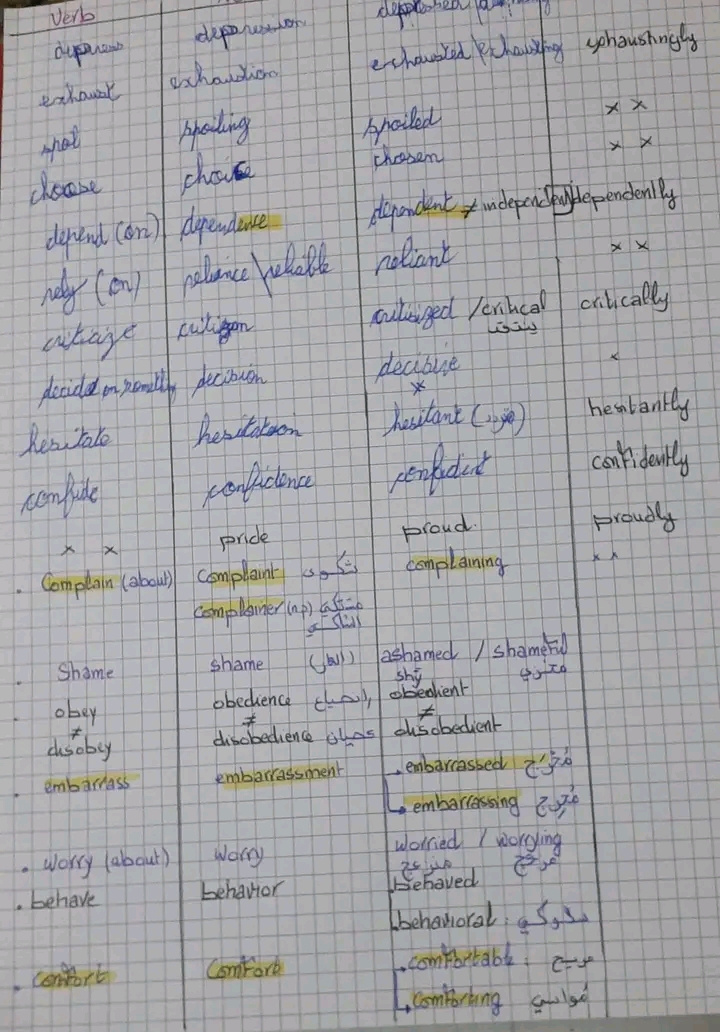 Verb
depress depression depressed
exhaust exhaustion exhausted \ exhausting exhaustingly
spoil spoiling spoiled x x
choose choice chosen x x
depend (on) dependence dependent ≠ independent dependently
rely (on) reliance \ reliable reliant x x
criticize criticism criticized / critical critically
decided on decision decisive x
x
hesitate hesitation hesitant hesitantly
confide confidence confident confidently
x x pride proud. proudly
. Complain (about) Complaint شكوى complaining x x
Complainer (n.p)
. Shame shame ashamed / shameful
shy
. obey obedience انصياع obedient
≠ ≠ ≠
disobey disobedience عصيان disobedient
. embarrass embarrassment embarrassed مُحْرَج
embarrassing مُحرِج
. Worry (about) Worry Worried / worrying
منزعج مزعج
. behave behavior behaved
behavioral : سلوكي
. comfort Comfort comfortable : مريح
comforting مُواسي